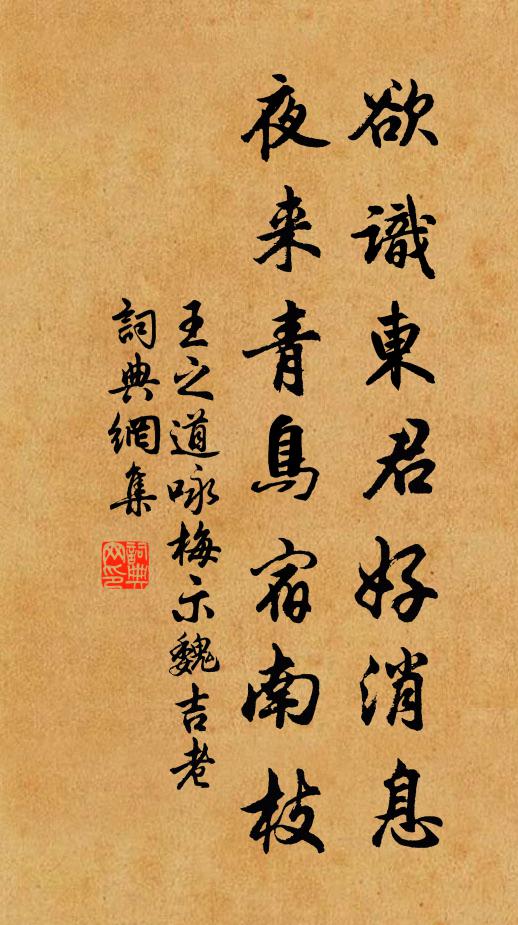 欲識東君好消息
夜来青鳥宿南枝
王之道咏梅示魏吉老
詞典網集
詞典
网印